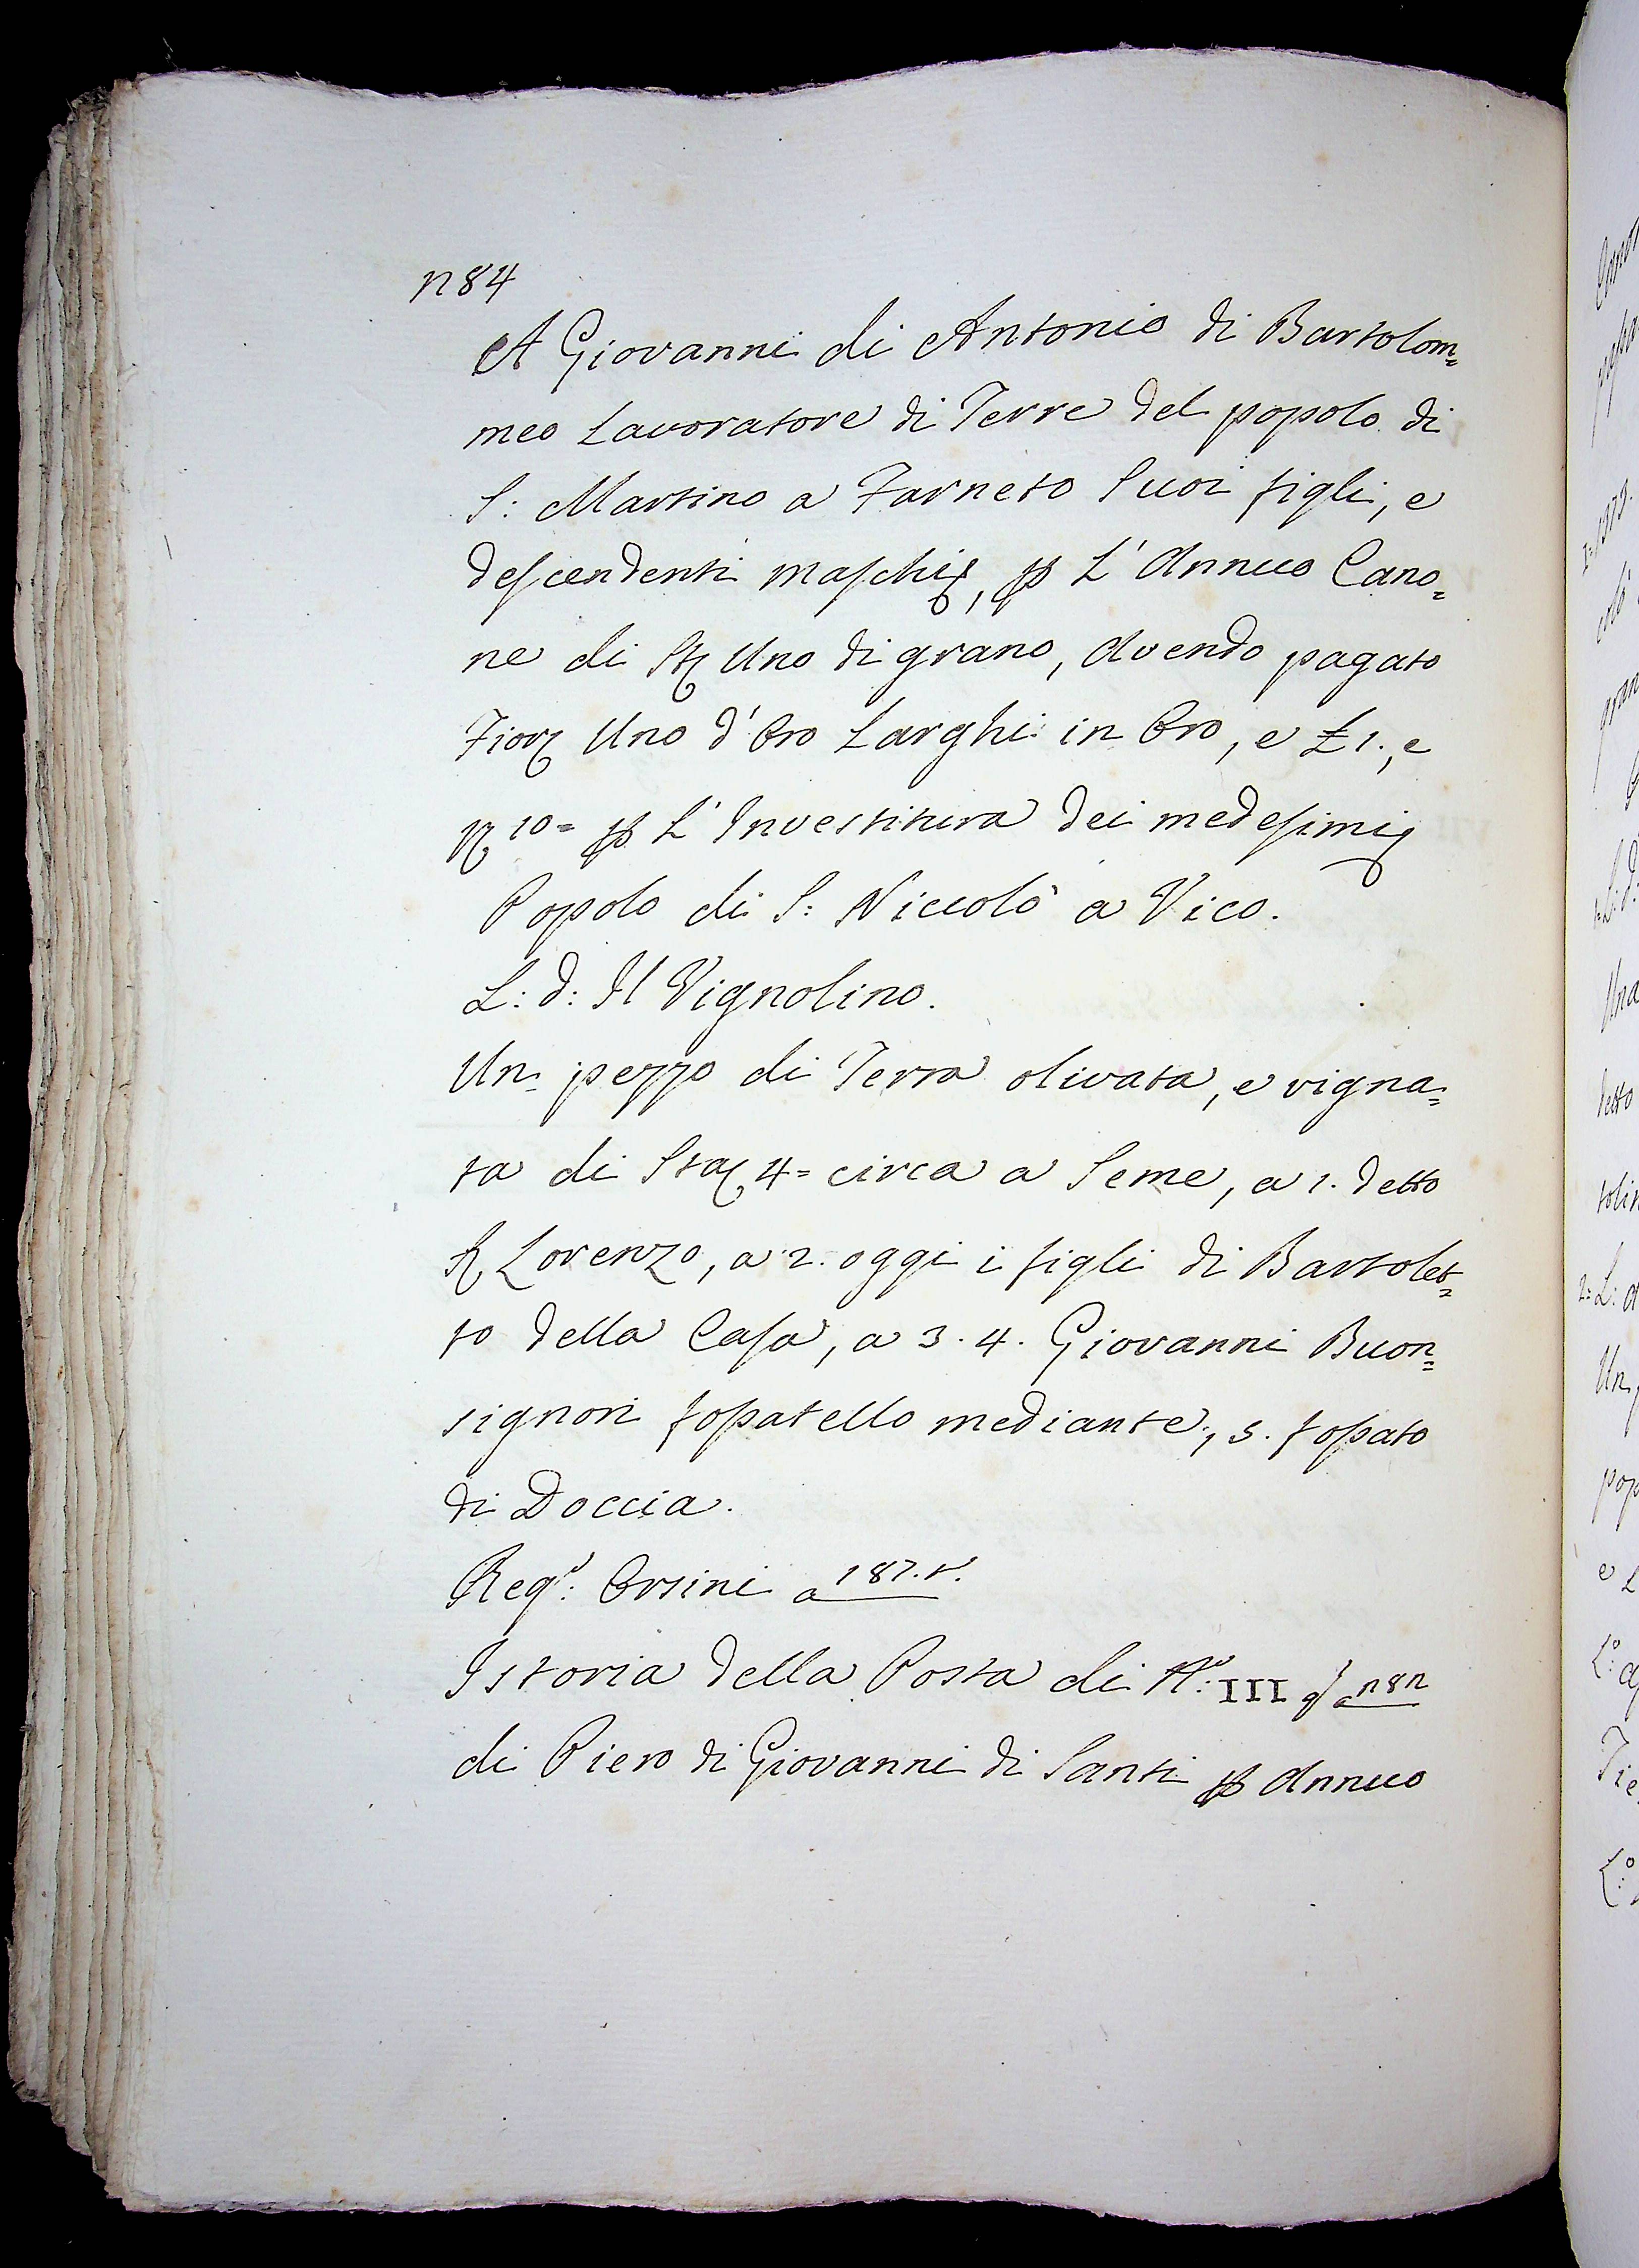 284
A Giovanni di Antonio di Bartolom=
meo Lavoratore di Terre del popolo di
S: Martino a Farneto Suoi figli, e
descendenti maschi, p L'Annuo Cano=
ne di St Uno di grano, Avendo pagato
Fior Uno d'Oro Larghi in Oro, e £ 1., e
10= p L'Investitura dei medesimi
Popolo di S: Niccolò a Vico.
L: d: Il Vignolino.
Un pezzo di Terra olivata, e vigna=
ta di Sta 4= circa a Seme, a 1. detto
Lorenzo, a 2. oggi i figli di Bartolet=
to della Casa, a 3. 4. Giovanni Buon=
signori fossatello mediante, 5. fossato
di Doccia.
Reg: Orsini a 187. t.
Istoria della Posta di N: III a 282
di Piero di Giovanni di Santi p Annuo